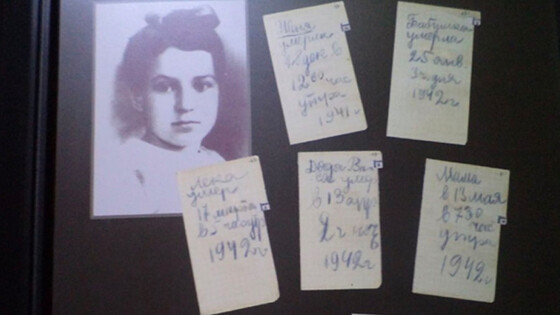 Женя
умерла
28 дек в
12 00 час
утра
1941 г
Бабушка
умерла
25 янв.
3 ч дня
1942 г
Лека
умер
17 марта
в 5 час утр
1942 г
Дядя Вася
умер
в 13 апр
2 ч ноч
1942 г
Мама
в 13 мая
в 7 30
час
утра
1942 г